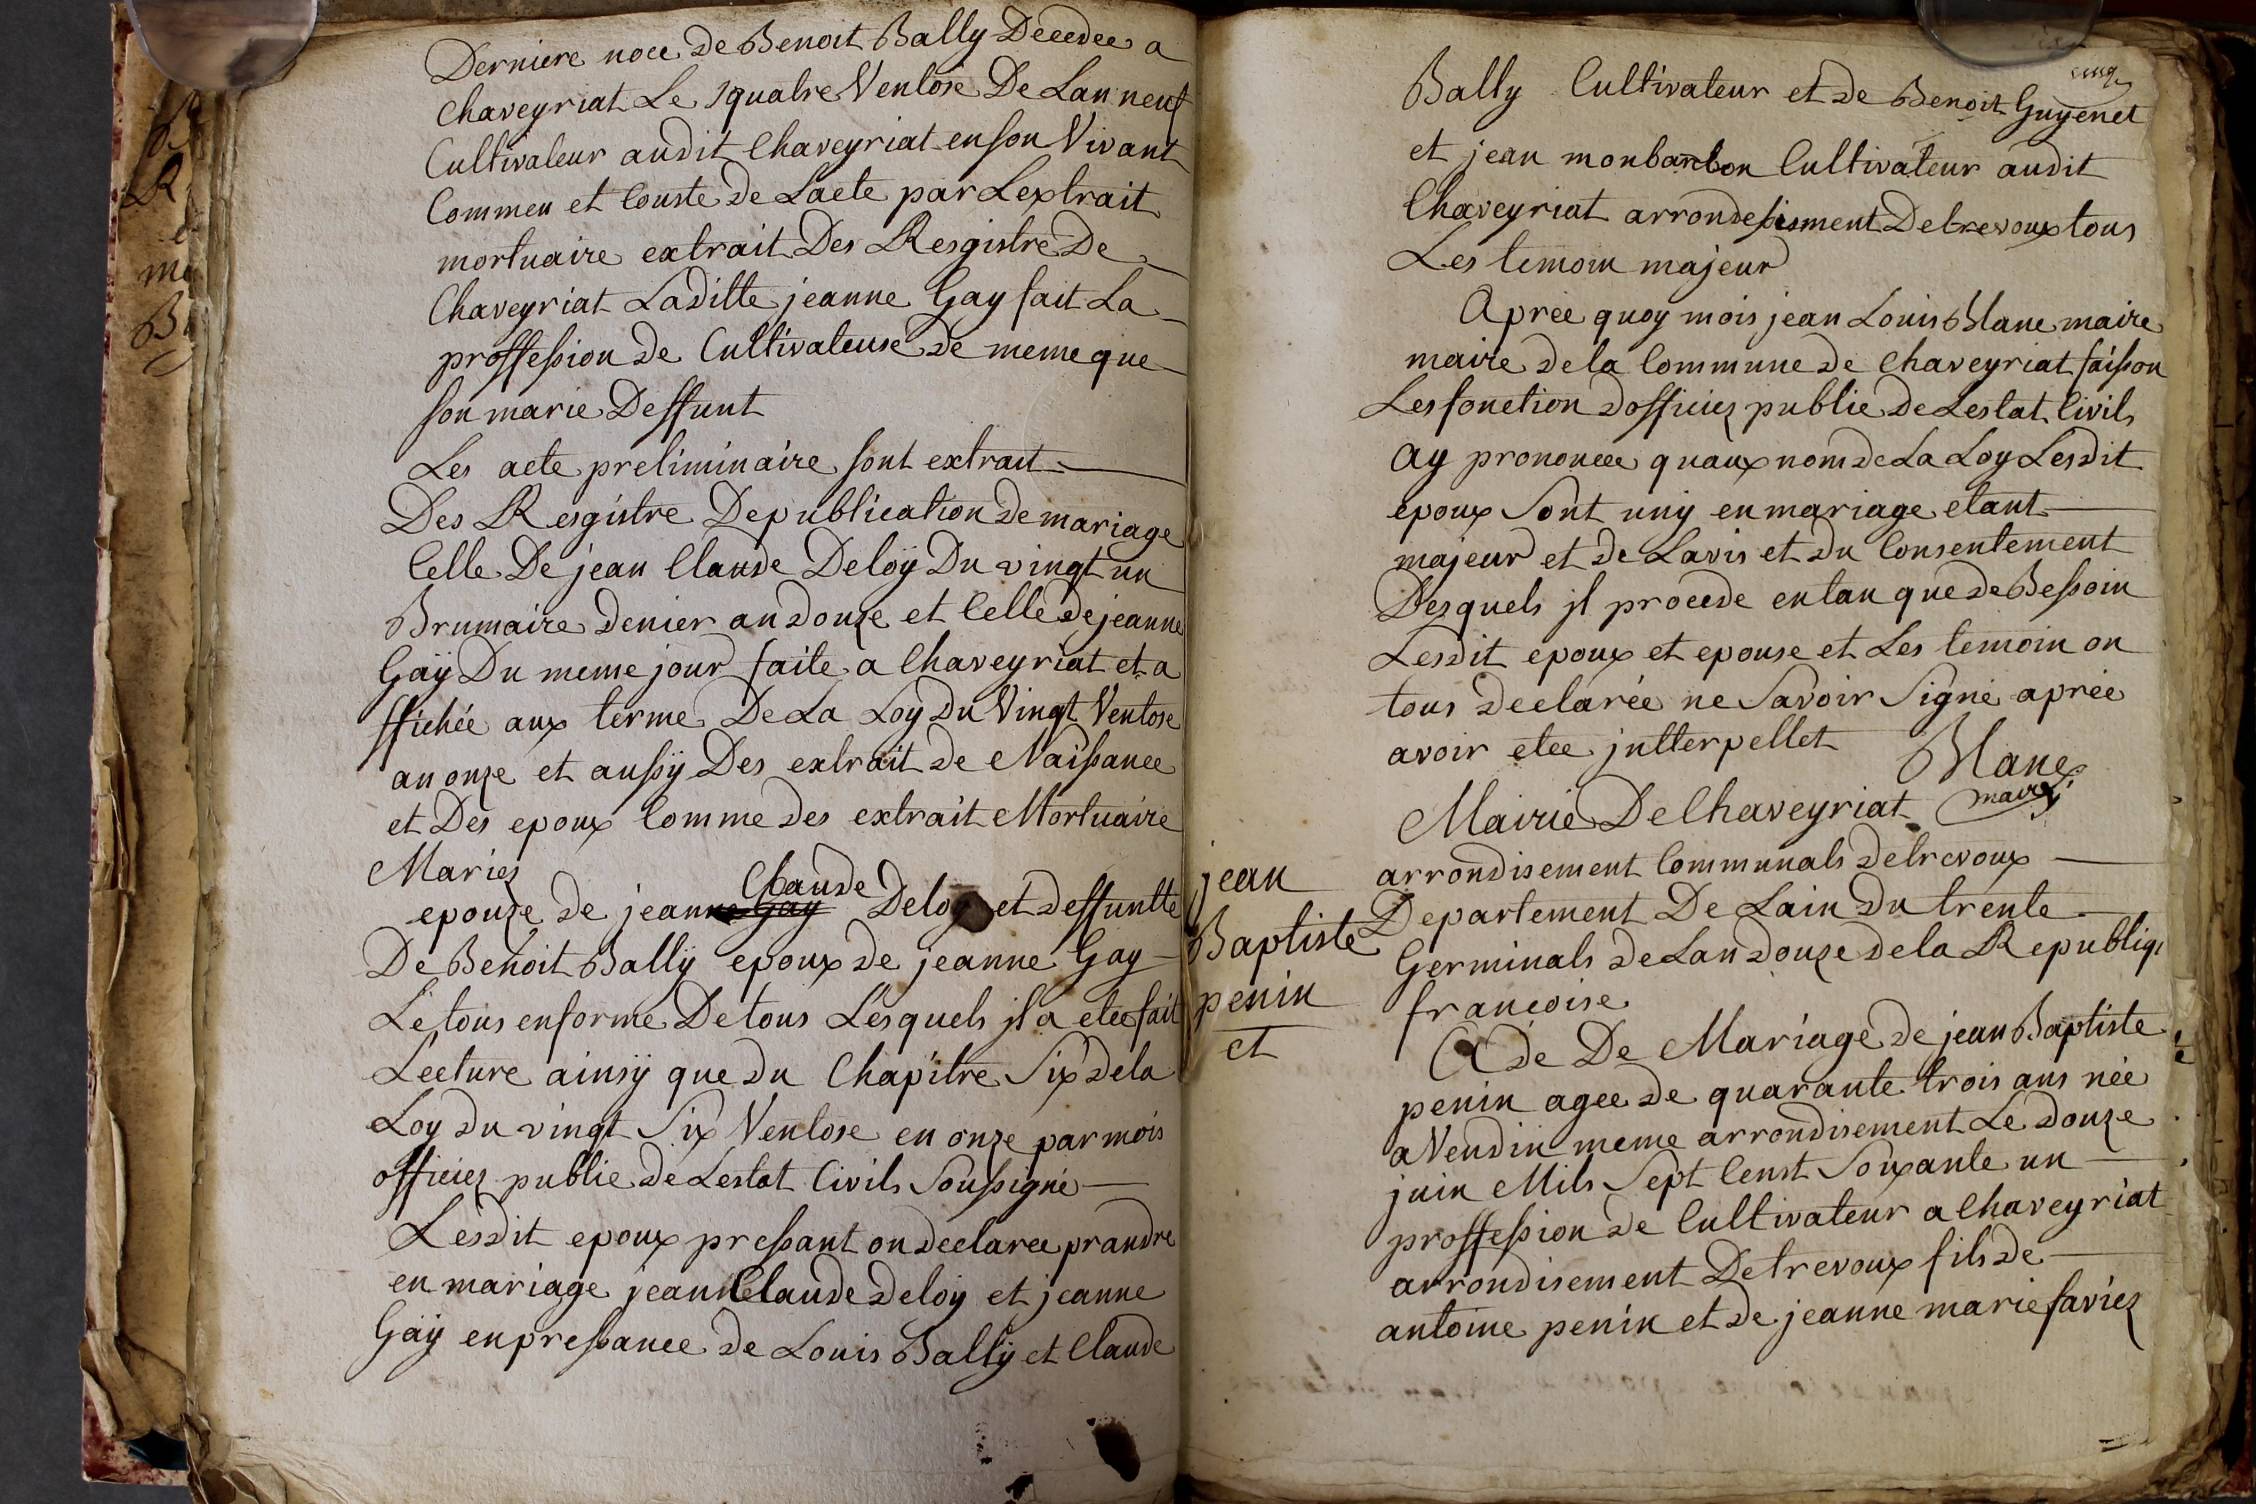 Derniere noce de Benoit Bally Decedee a
Chaveyriat Le quatre Ventose De Lan neuf
Cultivateur audit Chaveyriat en son Vivant
Commeu et Conste de Lacte par Lextrait
mortuaire extrait Des Resgistre De
Chaveyriat Laditte jeanne Gay fait La
proffession de Cultivateuse de meme que
son marie Deffunt
Les acte preliminaire sont extrait
Des Resgistre De publication de mariage
Celle De jean Claude Deloÿ Du vingt un
Brumaire denier an douze et Celle de jeanne
Gaÿ Du meme jour faite a Chaveyriat et a
ffichée aux terme De La Loy Du Vingt Ventose
an onze et aussy Des extrait de Naissance
et Des epoux Comme des extrait Mortuaire
Mariez
epouze de jeanne Gay Claude Deloy et deffuntte
De Benoit Ballÿ epoux de jeanne Gay
Le tous en forme De tous Lesquels jl a etee fait
Lecture ainsÿ que du Chapitre Six de la
Loy du vingt Six Ventose en onze par mois
officiez public de Lestat Civils soussigné
Lesdit epoux pressant on declaree prandre
en mariage jean Claude deloy et jeanne
Gaÿ en pressance de Louis Ballÿ et Claude
cinq
Bally Cultivateur et de Benoit Guyenet
et jean monbarbon Cultivateur audit
Chaveyriat arrondessisment De trevoux tous
Les temoin majeur
Apree quoy mois jean Louis Blanc maire
maire de la Commune de Chaveyriat faisson
Les fonction dofficiez public de Lestat Civils
ay prononcee quaux nom de La Loy Lesdit
epoux sont uny en mariage etant
majeur et de Lavis et du Consentement
Desquels jl procede en tan que de Bessoin
Lesdit epoux et epouse et Les temoin on
tous declarée ne Savoir Signé aprée
avoir etee jntterpellet
Blanc
maire
Mairie De Chaveyriat
arrondisement Communals de trevoux
Departement De Lain Du trente
Germinals de Lan douze de la Republiq
francoise
jean
Baptiste
penin
et
De Mariage de jean Baptiste
penin agee de quarante trois ans née
a Vendin meme arrondisement Le douze
juin Mils Sept Censt Soixante un
proffession de Cultivateur a Chaveyriat
arrondisement De trevoux fils de
antoine penin et de jeanne marie faviez